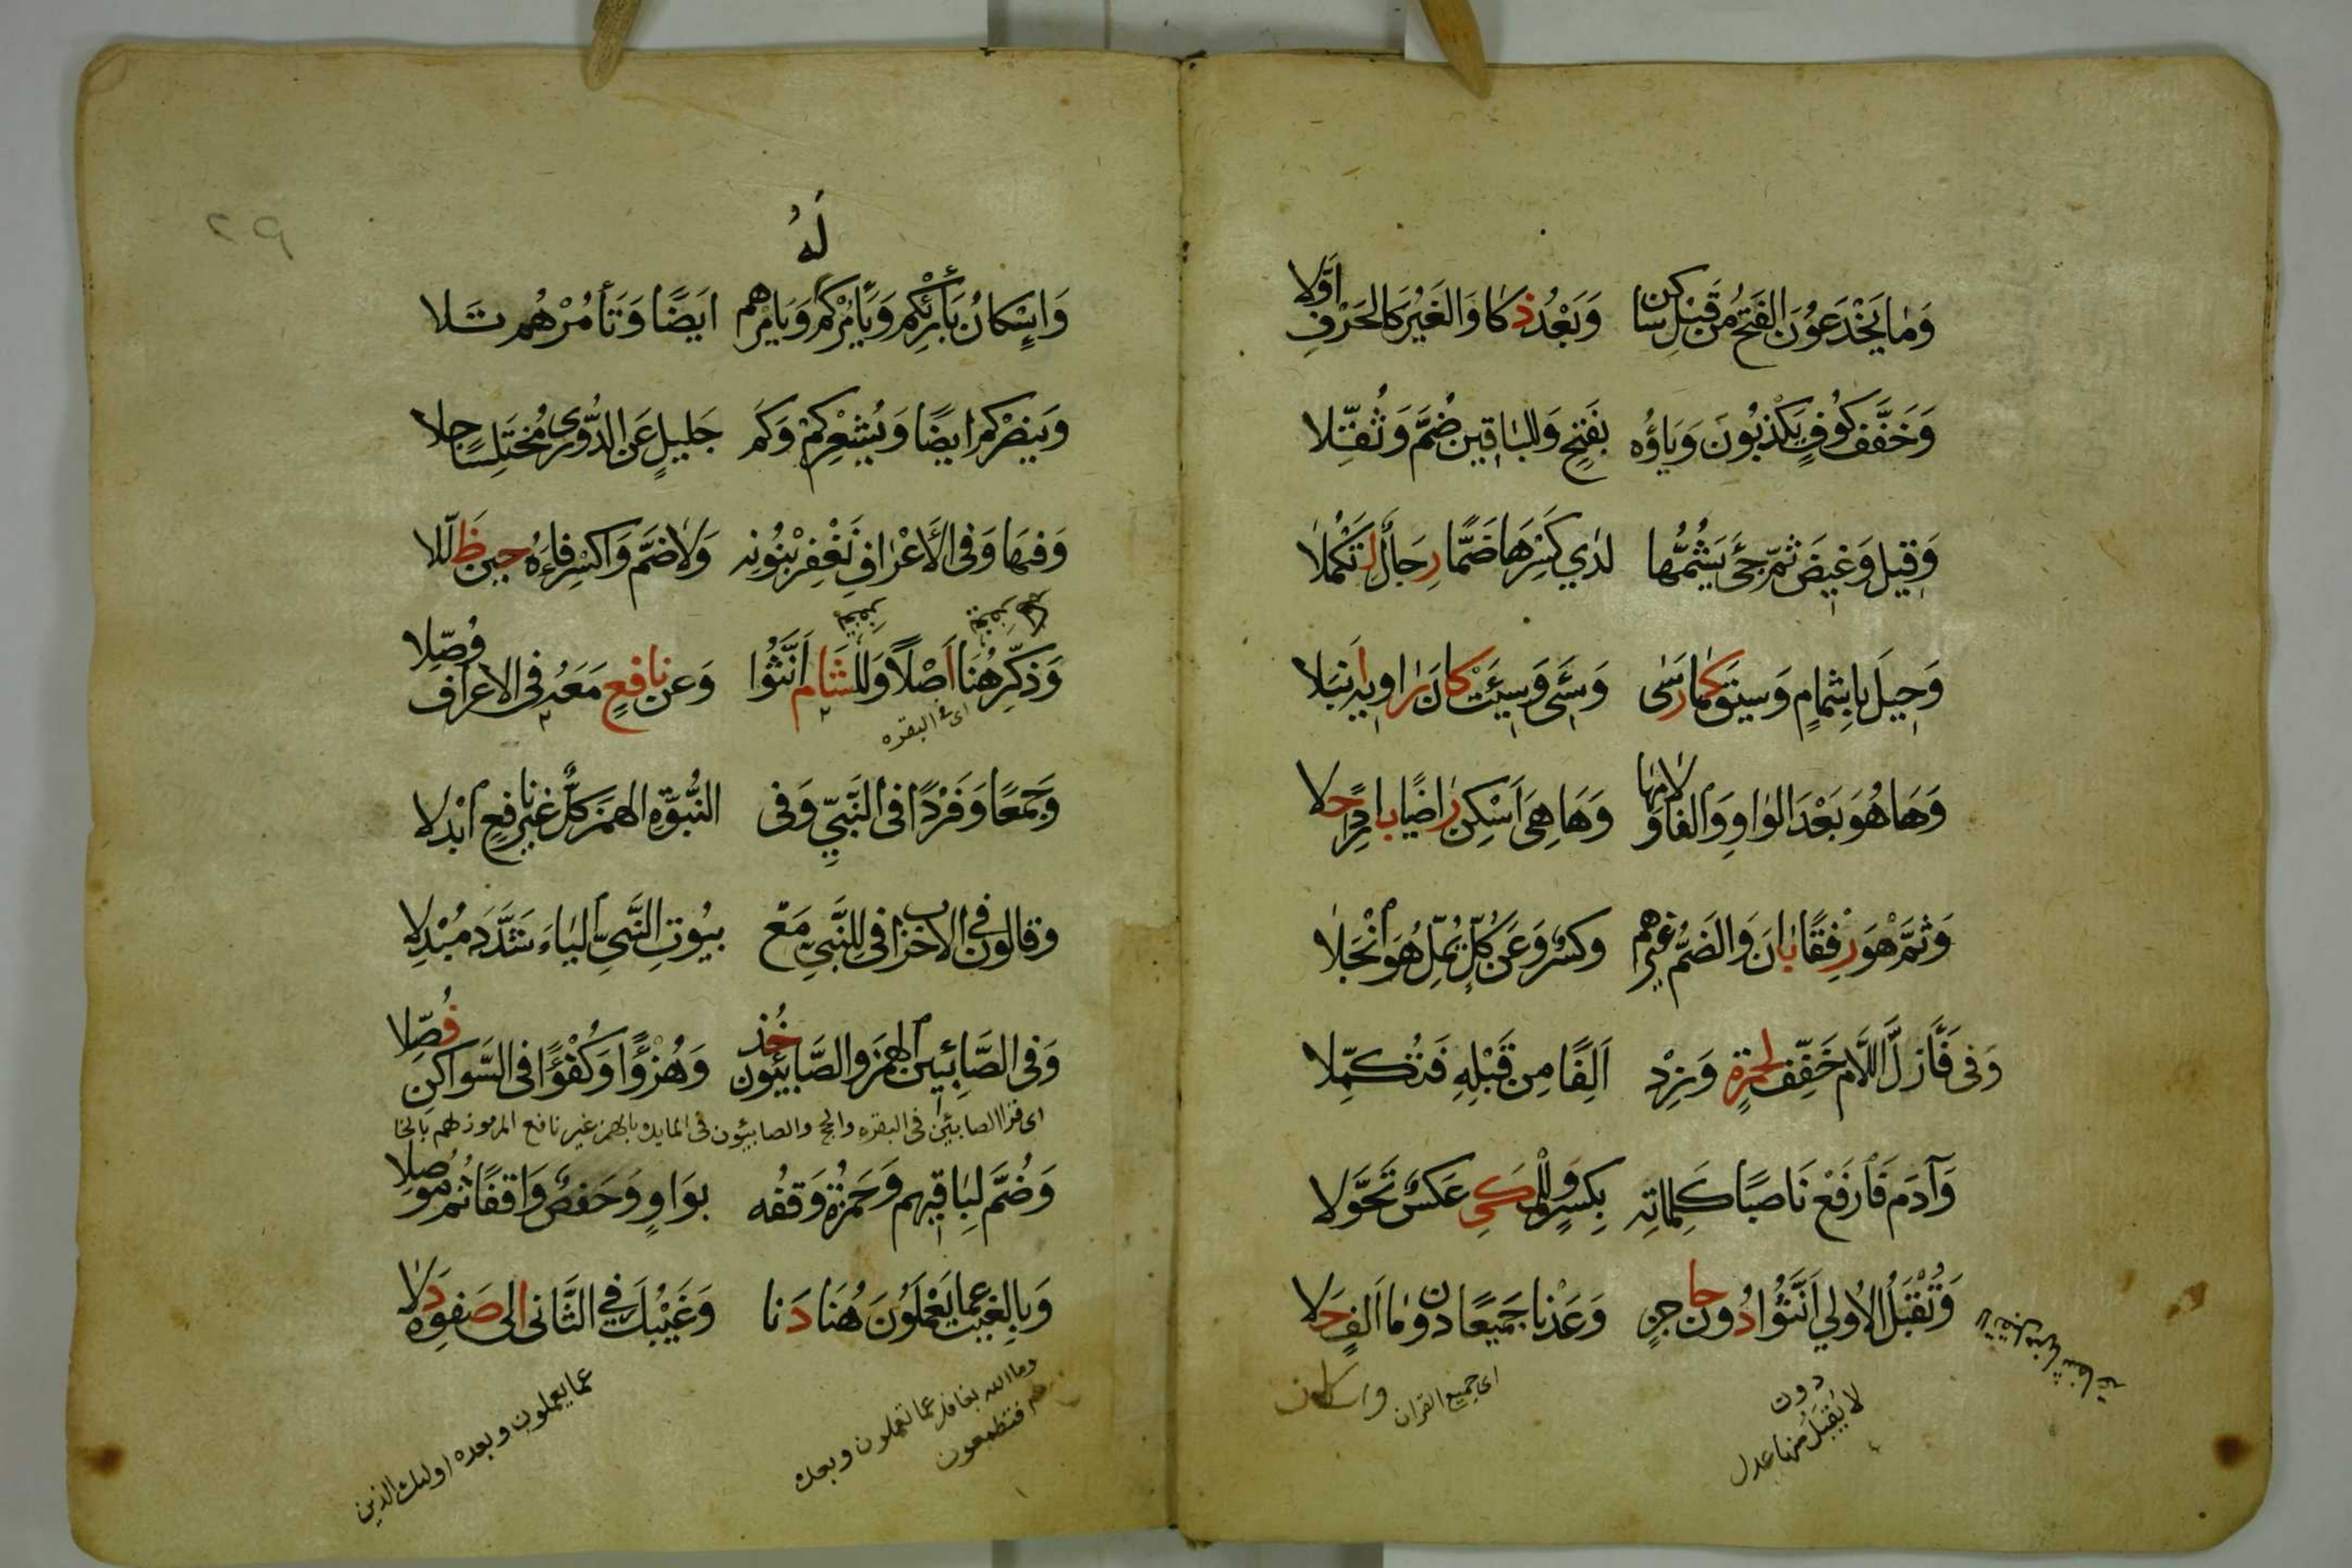 وَمَا يَخْدَعُونَ الفَتْحُ مِنْ قَبْلِ سَاكِنٍ وَبَعْدُ ذَكَا وَالغَيْرُ كَالحَرْفِ اَوَّلَا
وَخَفَّفَ كُوفٍ يَكْذِبُونَ وَيَاؤُهُ بِفَتْحٍ وَلِلْبَاقِينَ ضُمَّ وَثُقِّلَا
وَقِيلَ وَغِيضَ ثُمَّ جِيَ يُشِمُّهَا لَدَي كَسْرِهَا ضَمًّا رِجَالٌ لِتَكْمُلَا
وَحِيلَ بِاِشْمَامٍ وَسِيقَ كَمَا رَسَى وَسِئَ وَسِيئَتْ كَانَ رَاوِيهِ اَنْبَلَا
وَهَا هُوَ بَعْدَ الوَاوِ وَالفَا وَلَامِهَا وَهَا هِيَ اَسْكِنْ رَاضِيًا بَارِدًا حَلَا
وَثُمَّ هْوَ رِفْقًا بَانَ وَالضَمُّ غَيْرُهُمْ وَكَسْرٌ وَعَنْ كُلٍّ يُمِلَّ هُوَ انْجَلَا
وَفِي فَأَزَلَّ اللَّامَ خَفِّفْ لِحَمْزَةٍ وَزِدْ اَلِفًا مِنْ قَبْلِهِ فَتُكَمِّلَا
وَآدَمَ فَارْفَعْ نَاصِبًا كَلِمَاتِهِ بِكَسْرٍ وَلِلْمَكِّي عَكْسٌ تَحَوَّلَا
وَتُقْبَلُ الاُولَي اَنَّثُوا دُونَ حَاجِزٍ وَعَدْنَا جَمِيعًا دُونَ مَا اَلِفٍ حَلَا
دون
لا يُقْبَلُ منها عدل
اى جميع القران
واسكان
٢٩
وَاِسْكَانُ بَارِئْكُمْ وَيَأْمُرْكُمْ لَهُ وَيَأْمُرْهُمْ اَيْضًا وَتَأْمُرْهُمْ تَلَا
وَيَنْصُرْكُمْ اَيْضًا وَيُشْعِرْكُمْ وَكَمْ جَلِيلٍ عَنِ الدُّورِى مُخْتَلِسًا جَلَا
وَفِيهَا وَفِى الأَعْرَافِ نَغْفِرْ بِنُونِهِ وَلَا ضَمَّ وَاكْسِرْ فَاءَهُ حِينَ ظَلَّلَا
وَذَكِّرْ هُنَا اَصْلًا وَلِلشَّامِ اَنَّثُوا وَعَنْ نَافِعٍ مَعَهُ فِى الاعْرَافِ وُصِّلَا
اى فى البقره
وَجَمْعًا وَفَرْدًا فِى النَّبِيِّ وَفِى النُّبُوَّةِ الهَمْزَ كُلٌّ غَيْرَ نَافِعٍ ابْدَلَا
وَقَالُونُ فِى الاحْزَابِ فِى لِلنَّبِيِّ مَعْ بُيُوتِ النَّبِيِّ اليَاءَ شَدَّدَ مُبْدِلَا
وَفِى الصَّابِئِينَ الهَمْزَ وَالصَّابِئُونَ خُذْ وَهُزْؤًا وَكُفْؤًا فِى السَّوَاكِنِ فُصِّلَا
اى قرا الصابئين فى البقره والحج والصابيئون فى المايده بالهمز غير نافع المرموز هم بالخا
وَضُمَّ لِبَاقِيهِمْ وَحَمْزَةُ وَقْفُهُ بِوَاوٍ وَحَفْصٌ وَاقِفًا ثُمَّ مُوصِلَا
وَبِالغَيْبِ عَمَّا يَعْمَلُونَ هُنَا دَنَا وَغَيْبُكَ فِى الثَّانِى اِلَى صَفْوِهِ دَلَا
وما الله بغافل عما تعملون وبعده
فتطمعون
عما يعملون وبعده اولئك الذين